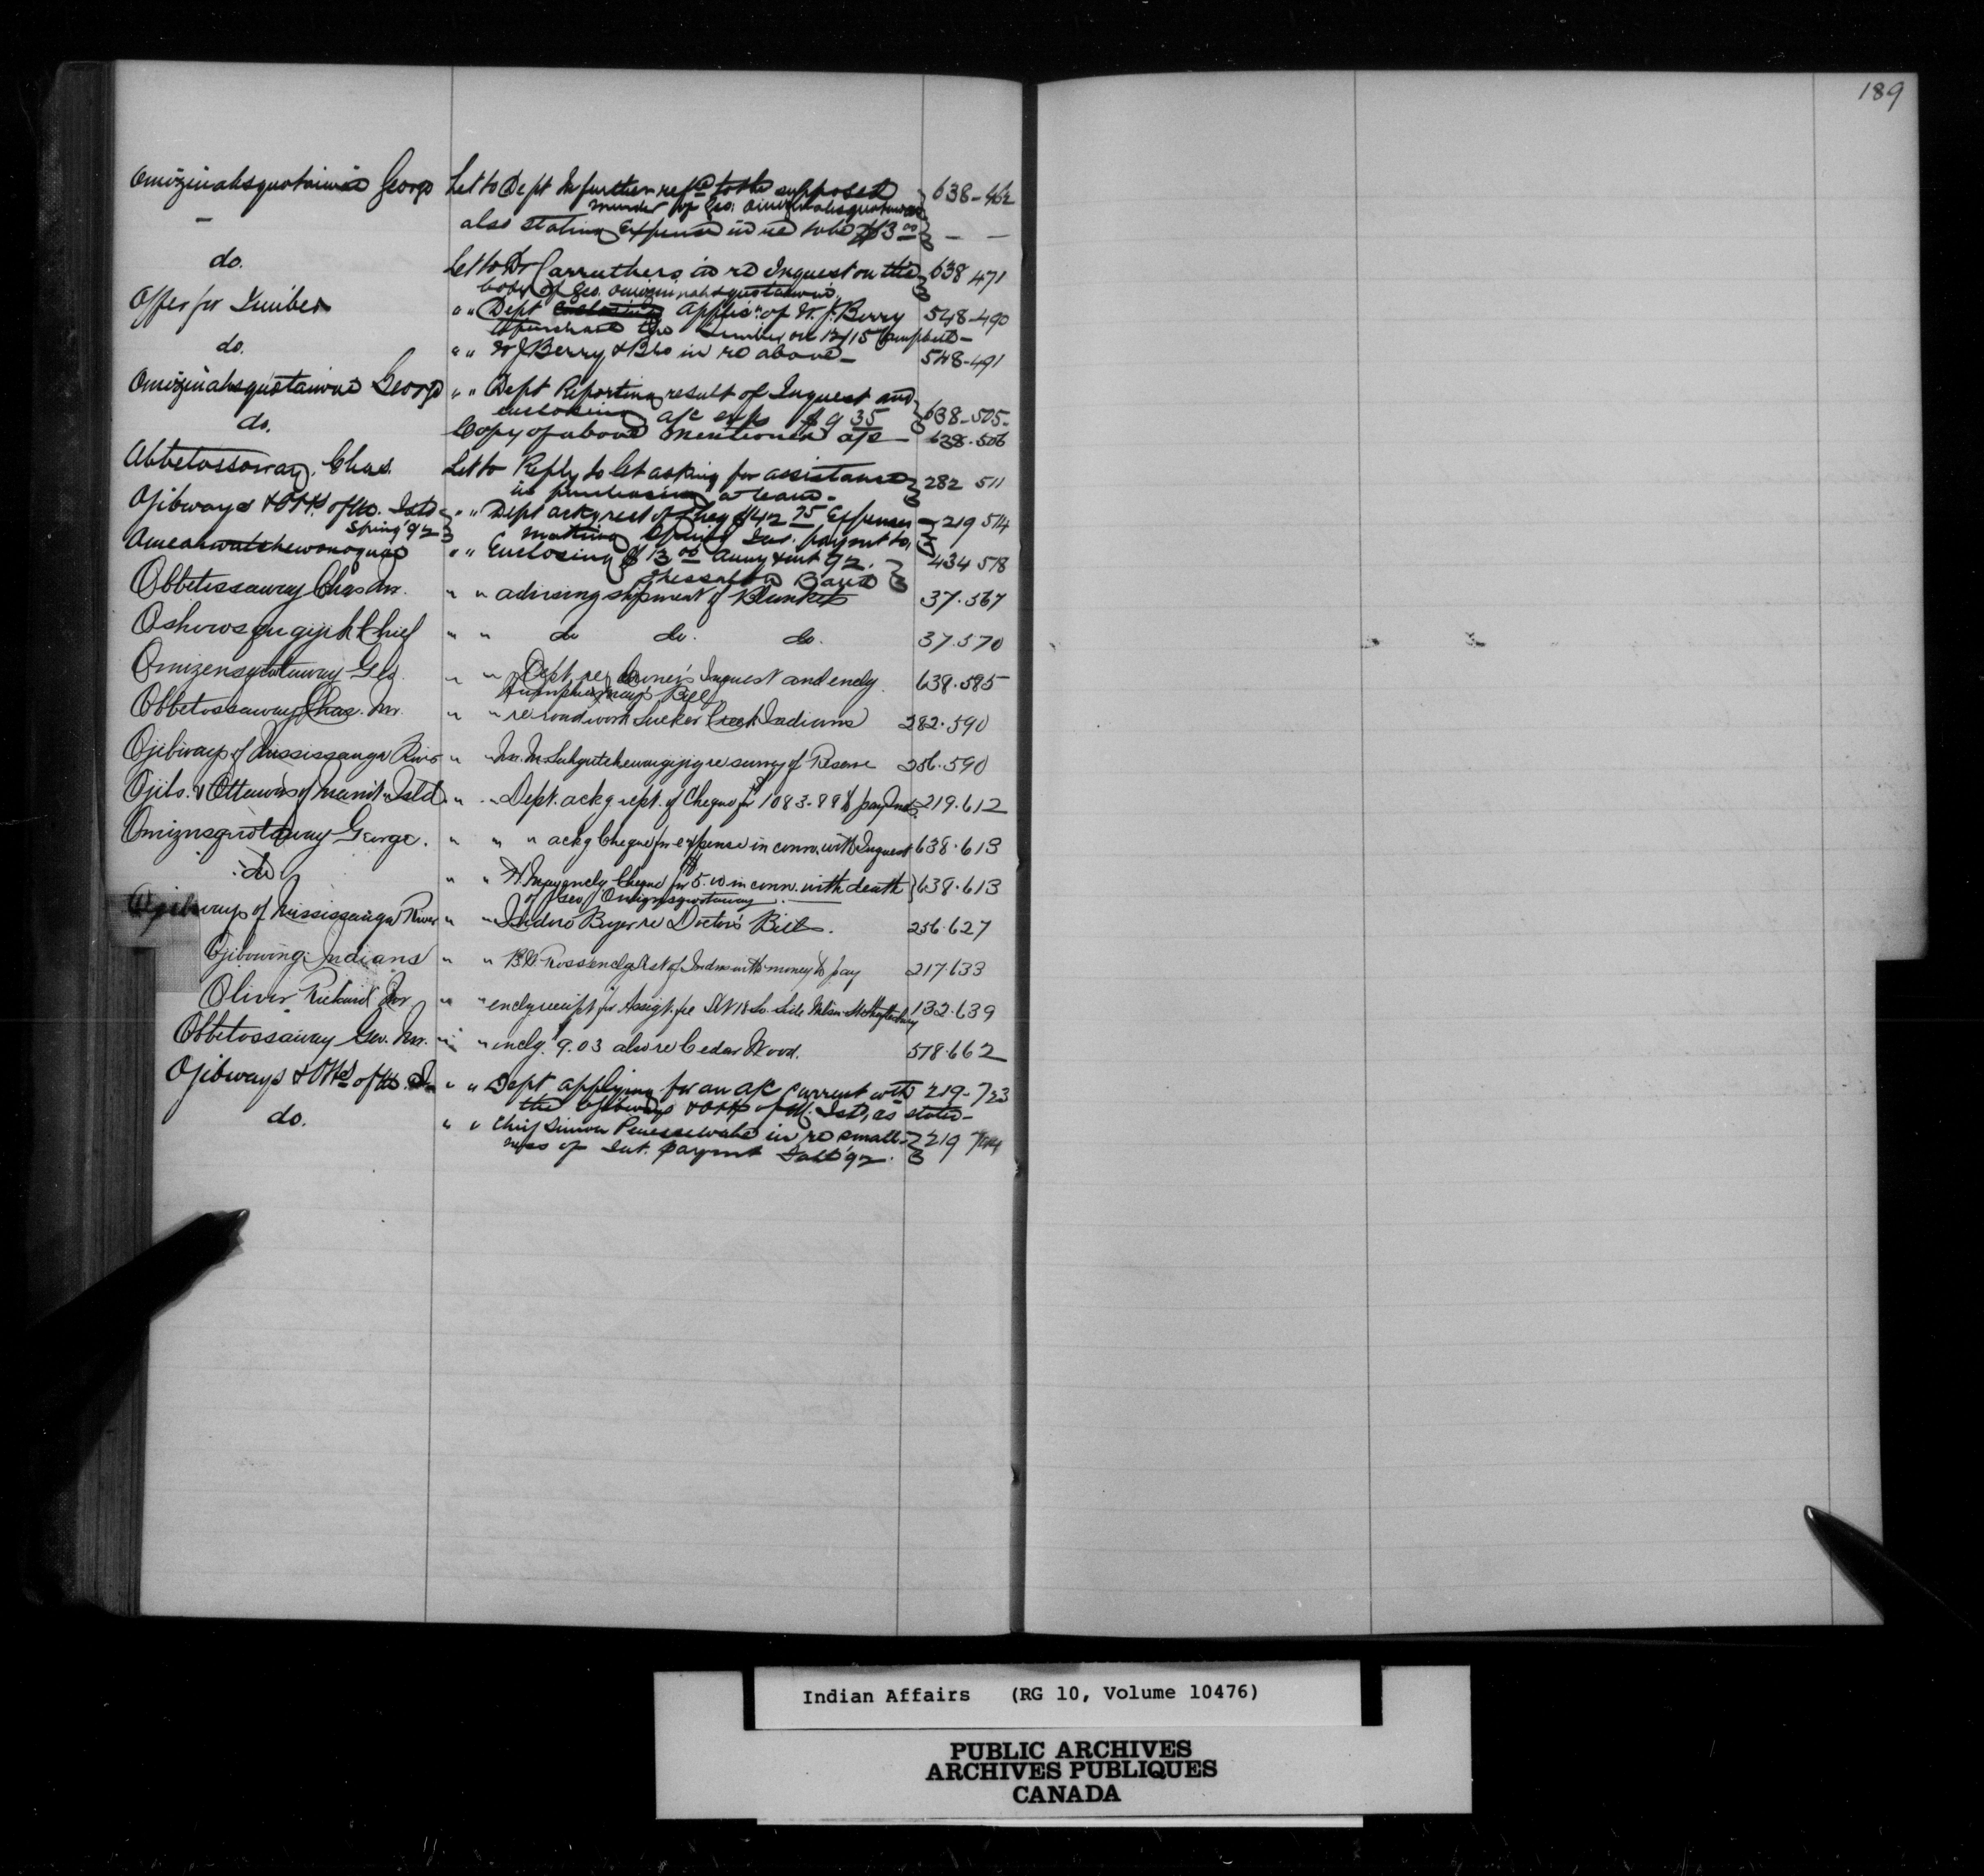 189
Omizinahsquotaiwai George Let to Dept In further refce to the supposed 638-462
murder of Geo. Omizinahsquotaiwai
also stating Expense in re to be $13 00
do. Let to Dr Carruthers in re Inquest on the 638 471
body of Geo. Omizinahsquotaiwai
Offer for Timber " " Dept Enclosing Applicn. of W. J. Berry 548-490
to purchase the timber on 12/15 Campbell -
do. " " W J Berry & Bro in re above - 548-491
Omizinahsquotaiwai George " " Dept Reporting result of Inquest and 638-505-
enclosing a/c exps $9 35
do. Copy of above mentioned a/c - 638-506
Abbetossoway, Chas. Let to Reply to let asking for assistance 282 511
in purchasing a team -
Ojibways & Otts. of M. Isld " " Dept ackg rect of cheq $42 75 Expenses 219 514
Spring '92 making Spring Int. paymt to,
" " Enclosing $13 00 Anny & int 92. 434 518
Thessalon Band
Obbetossaway Chas Mr. " " advising shipment of Blankets 37.567
Chief " " do do. do. 37.570
Omizensquotaway Geo. " " Dept. re Coroner's Inquest and enclg 638.585
Bill
Obbetossaway Chas. Mr. " " re road work Sucker Creek Indians 282.590
Ojibways of Mississauga River " " re survey of Reserve 256.590
Ojibs. & Ottawas of Manit. Isld " " Dept. ackg rept. of Cheque for $1083.88 to pay Inds. 219.612
Omiznsquotaway George. " " " ackg Cheque for expense in conn. with Inquest 638.613
do " " enclg Cheque for $5.00 in conn. with death 638.613
of Geo. Omiznsquotaway.
Ojibways of Mississauga River " " Isidore Boyer re Doctor's Bill. 256.627
Ojibway Indians " " B.W. Ross enclg list of Indns with money to pay 217.633
Oliver Richard Mr " " enclg receipt for Assigt. fee 132.639
Obbetossaway Geo. Mr. " " enclg. $9.03 also re Cedar Wood. 578.662
Ojibways & Otts of M. Is " " Dept applying for an a/c Current with 219-723
the Ojibways & Otts of M. Isld, as stated -
do. " " Chief Simon in re small- 219
ness of Int. paymnt Fall '92.
Indian Affairs (RG 10, Volume 10476)
PUBLIC ARCHIVES
ARCHIVES PUBLIQUES
CANADA